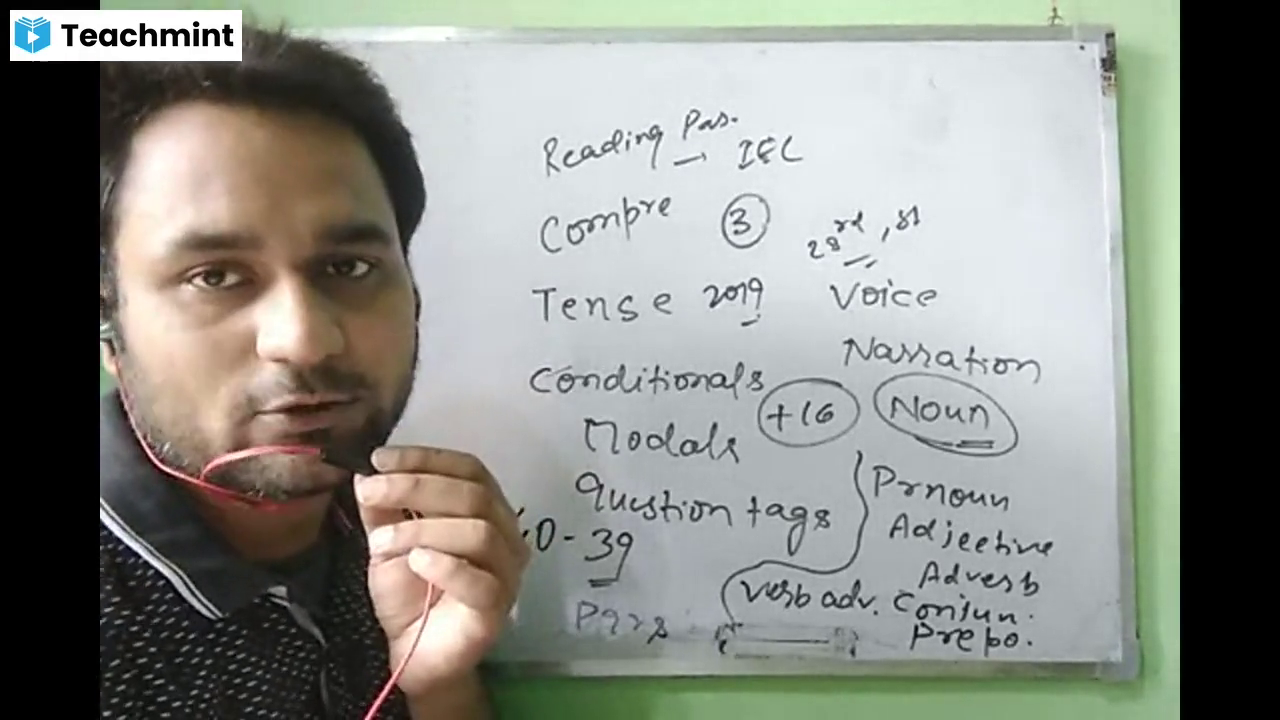 Teachmint
Reading Pas.
→ IEL
Compre 3
rd, st
Tense 2019 Voice
Narration
Conditionals
+16 Noun
Modals
Question tags
Prnoun
Adjective
0-39
Adverb
Verb adv. Conjun.
Prepo.